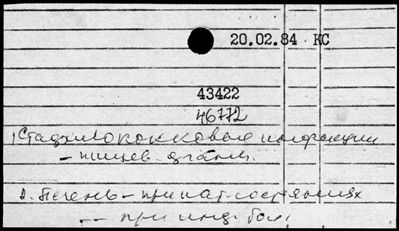 20.02.84 КС
43422
46772
1 Стафилококковые инфекции
- пищев.
2. Печень - при пат. состояниях
-- при инф. бол.